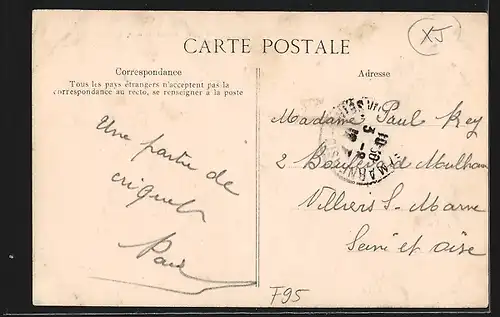 XJ
CARTE POSTALE
Correspondance
Tous les pays étrangers n'acceptent pas la
correspondance au recto, se renseigner à la poste
Adresse
Une partie de
criquet
Paul
Madame Paul Rey
2 Boulevard Mulhouse
Villiers S- Marne
Seine et Oise
10·30
3 - 8
MARNE
F95